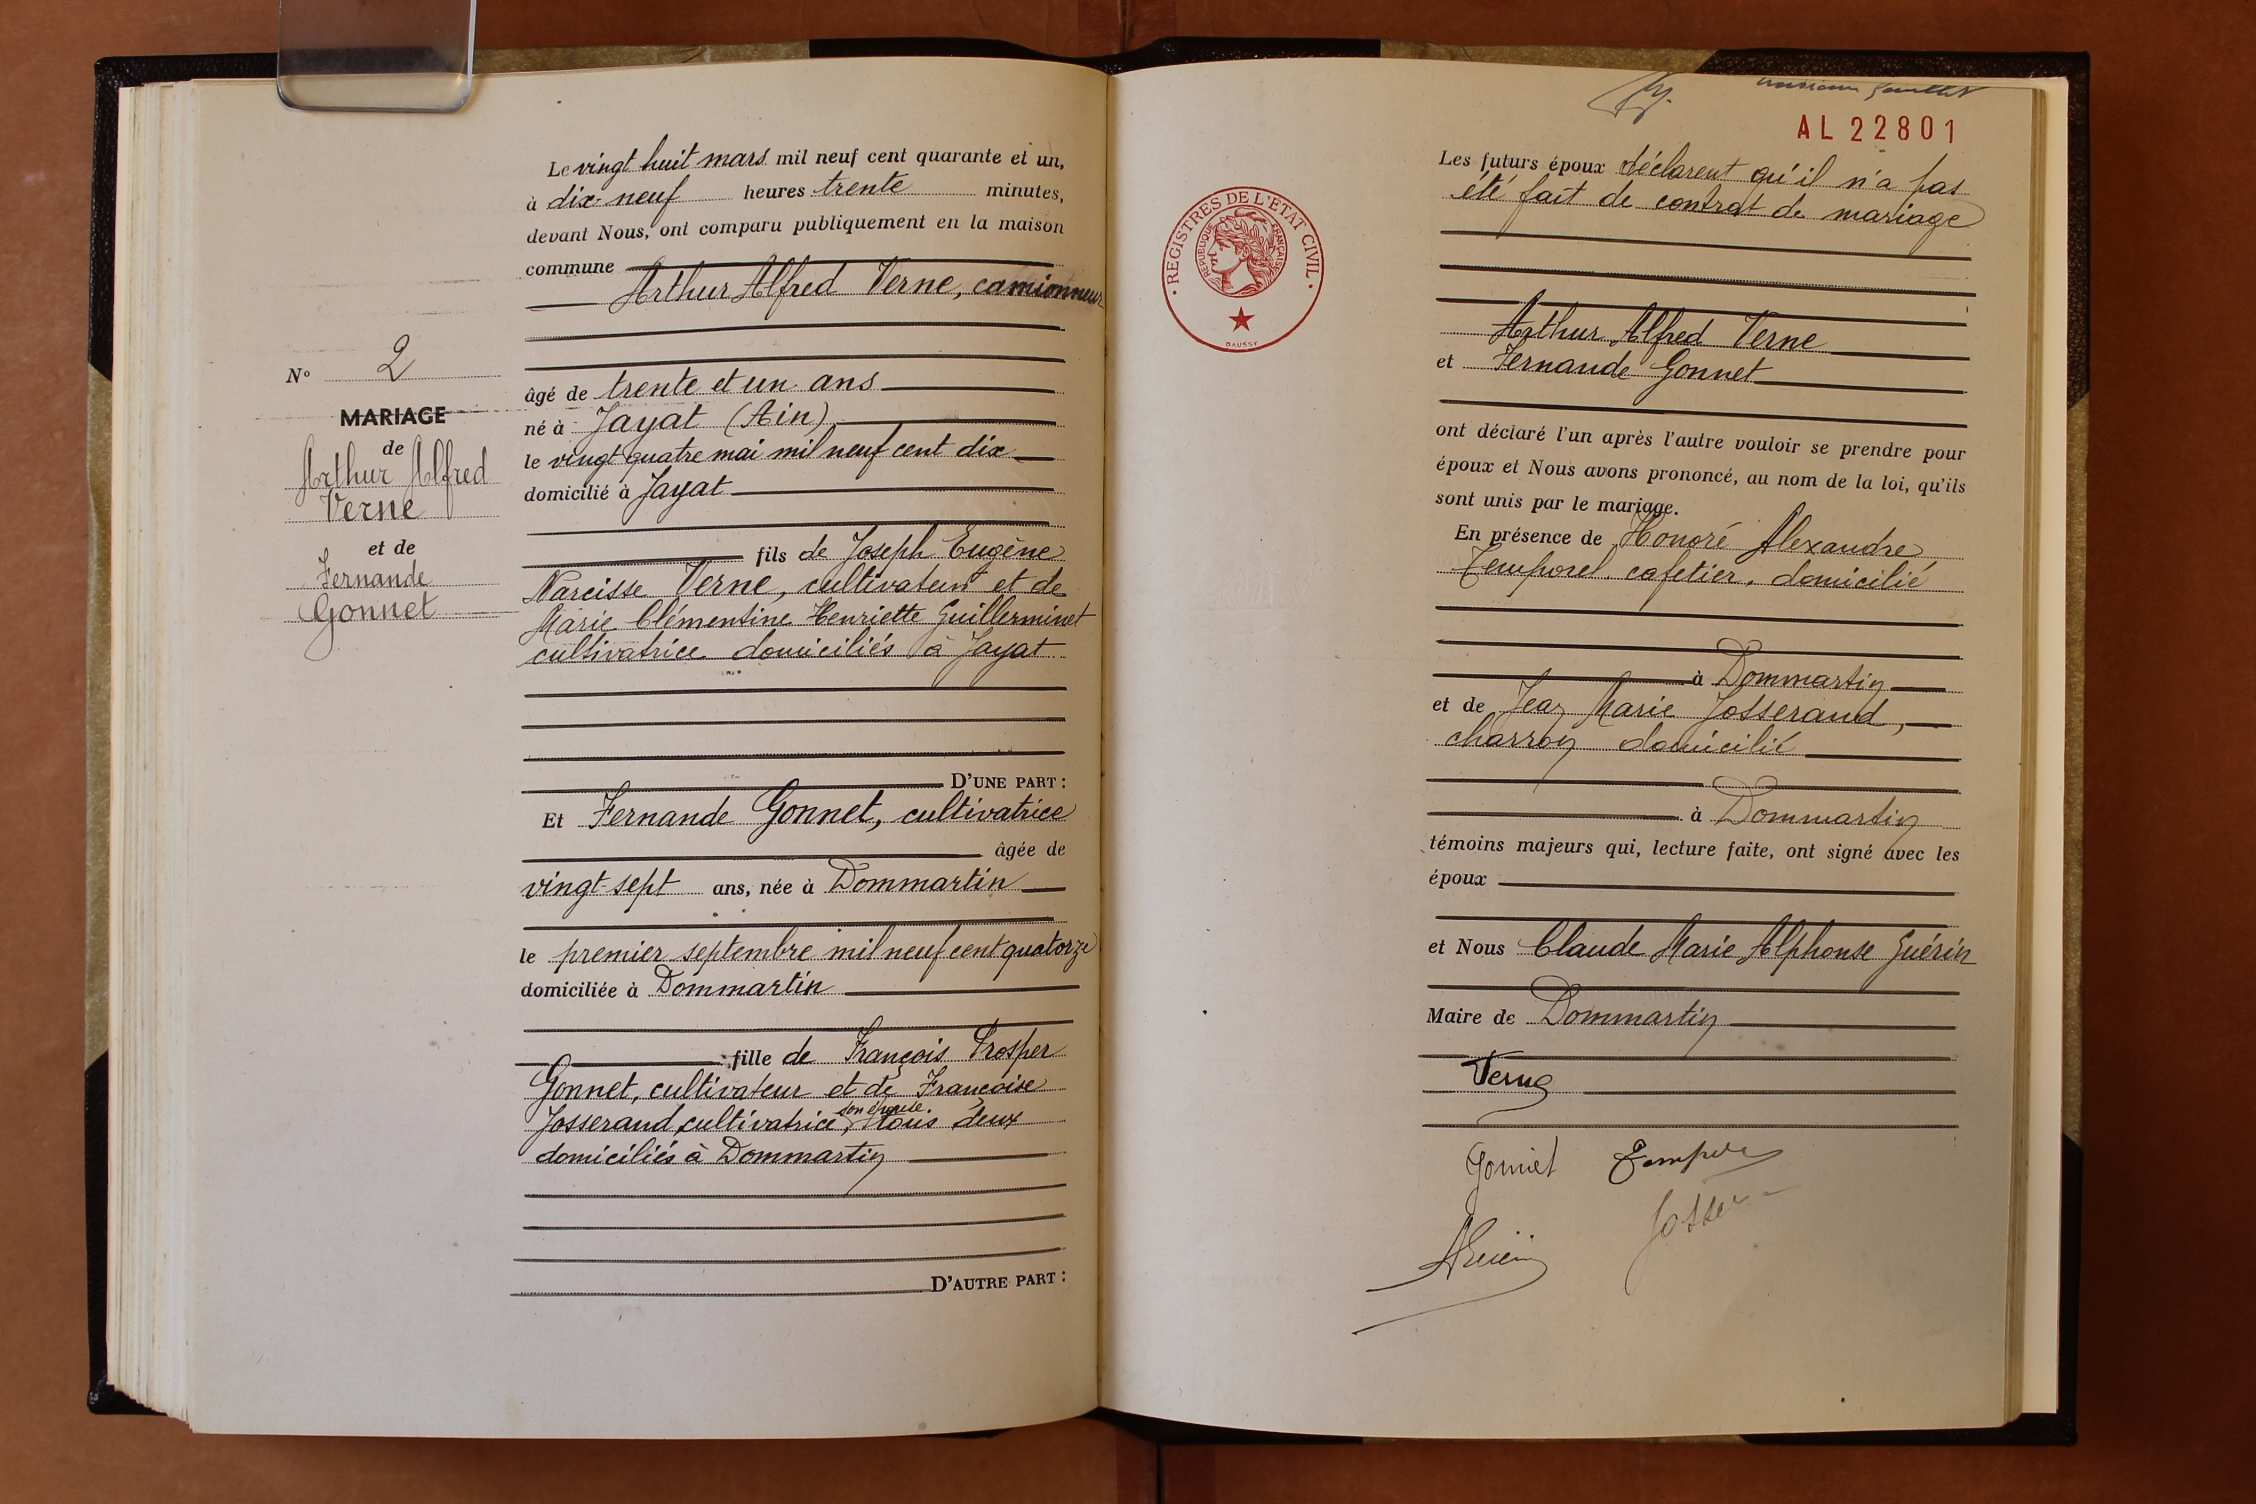 Le vingt huit mars mil neuf cent quarante et un,
à dix-neuf heures trente minutes,
devant Nous, ont comparu publiquement en la maison
commune
Arthur Alfred Verne, camionneur
âgé de trente et un ans
né à Jayat (Ain)
le vingt quatre mai mil neuf cent dix
domicilié à Jayat
fils de Joseph Eugène
Narcisse Verne, cultivateur et de
Marie Clémentine Henriette Guillerminet
cultivatrice domiciliés à Jayat
D'UNE PART :
Et Fernande Gonnet, cultivatrice
âgée de
vingt-sept ans, née à Dommartin
le premier septembre mil neuf cent quatorze
domiciliée à Dommartin
fille de François Prosper
Gonnet, cultivateur et de Françoise
son épouse.
Josserand, cultivatrice, tous deux
domiciliés à Dommartin
D'AUTRE PART :
N° 2
MARIAGE
de
Arthur Alfred
Verne
et de
Fernande
Gonnet
REGISTRES DE L'ETAT CIVIL
REPUBLIQUE FRANÇAISE
DAUSSY
AL 22801
Les futurs époux déclarent qu'il n'a pas
été fait de contrat de mariage
Arthur Alfred Verne
et Fernande Gonnet
ont déclaré l'un après l'autre vouloir se prendre pour
époux et Nous avons prononcé, au nom de la loi, qu'ils
sont unis par le mariage.
En présence de Honoré Alexandre
Temporel, cafetier, domicilié
à Dommartin
et de Jean Marie Josserand,
charron domicilié
à Dommartin
témoins majeurs qui, lecture faite, ont signé avec les
époux
et Nous Claude Marie Alphonse Guérin
Maire de Dommartin
Verne
Gonnet